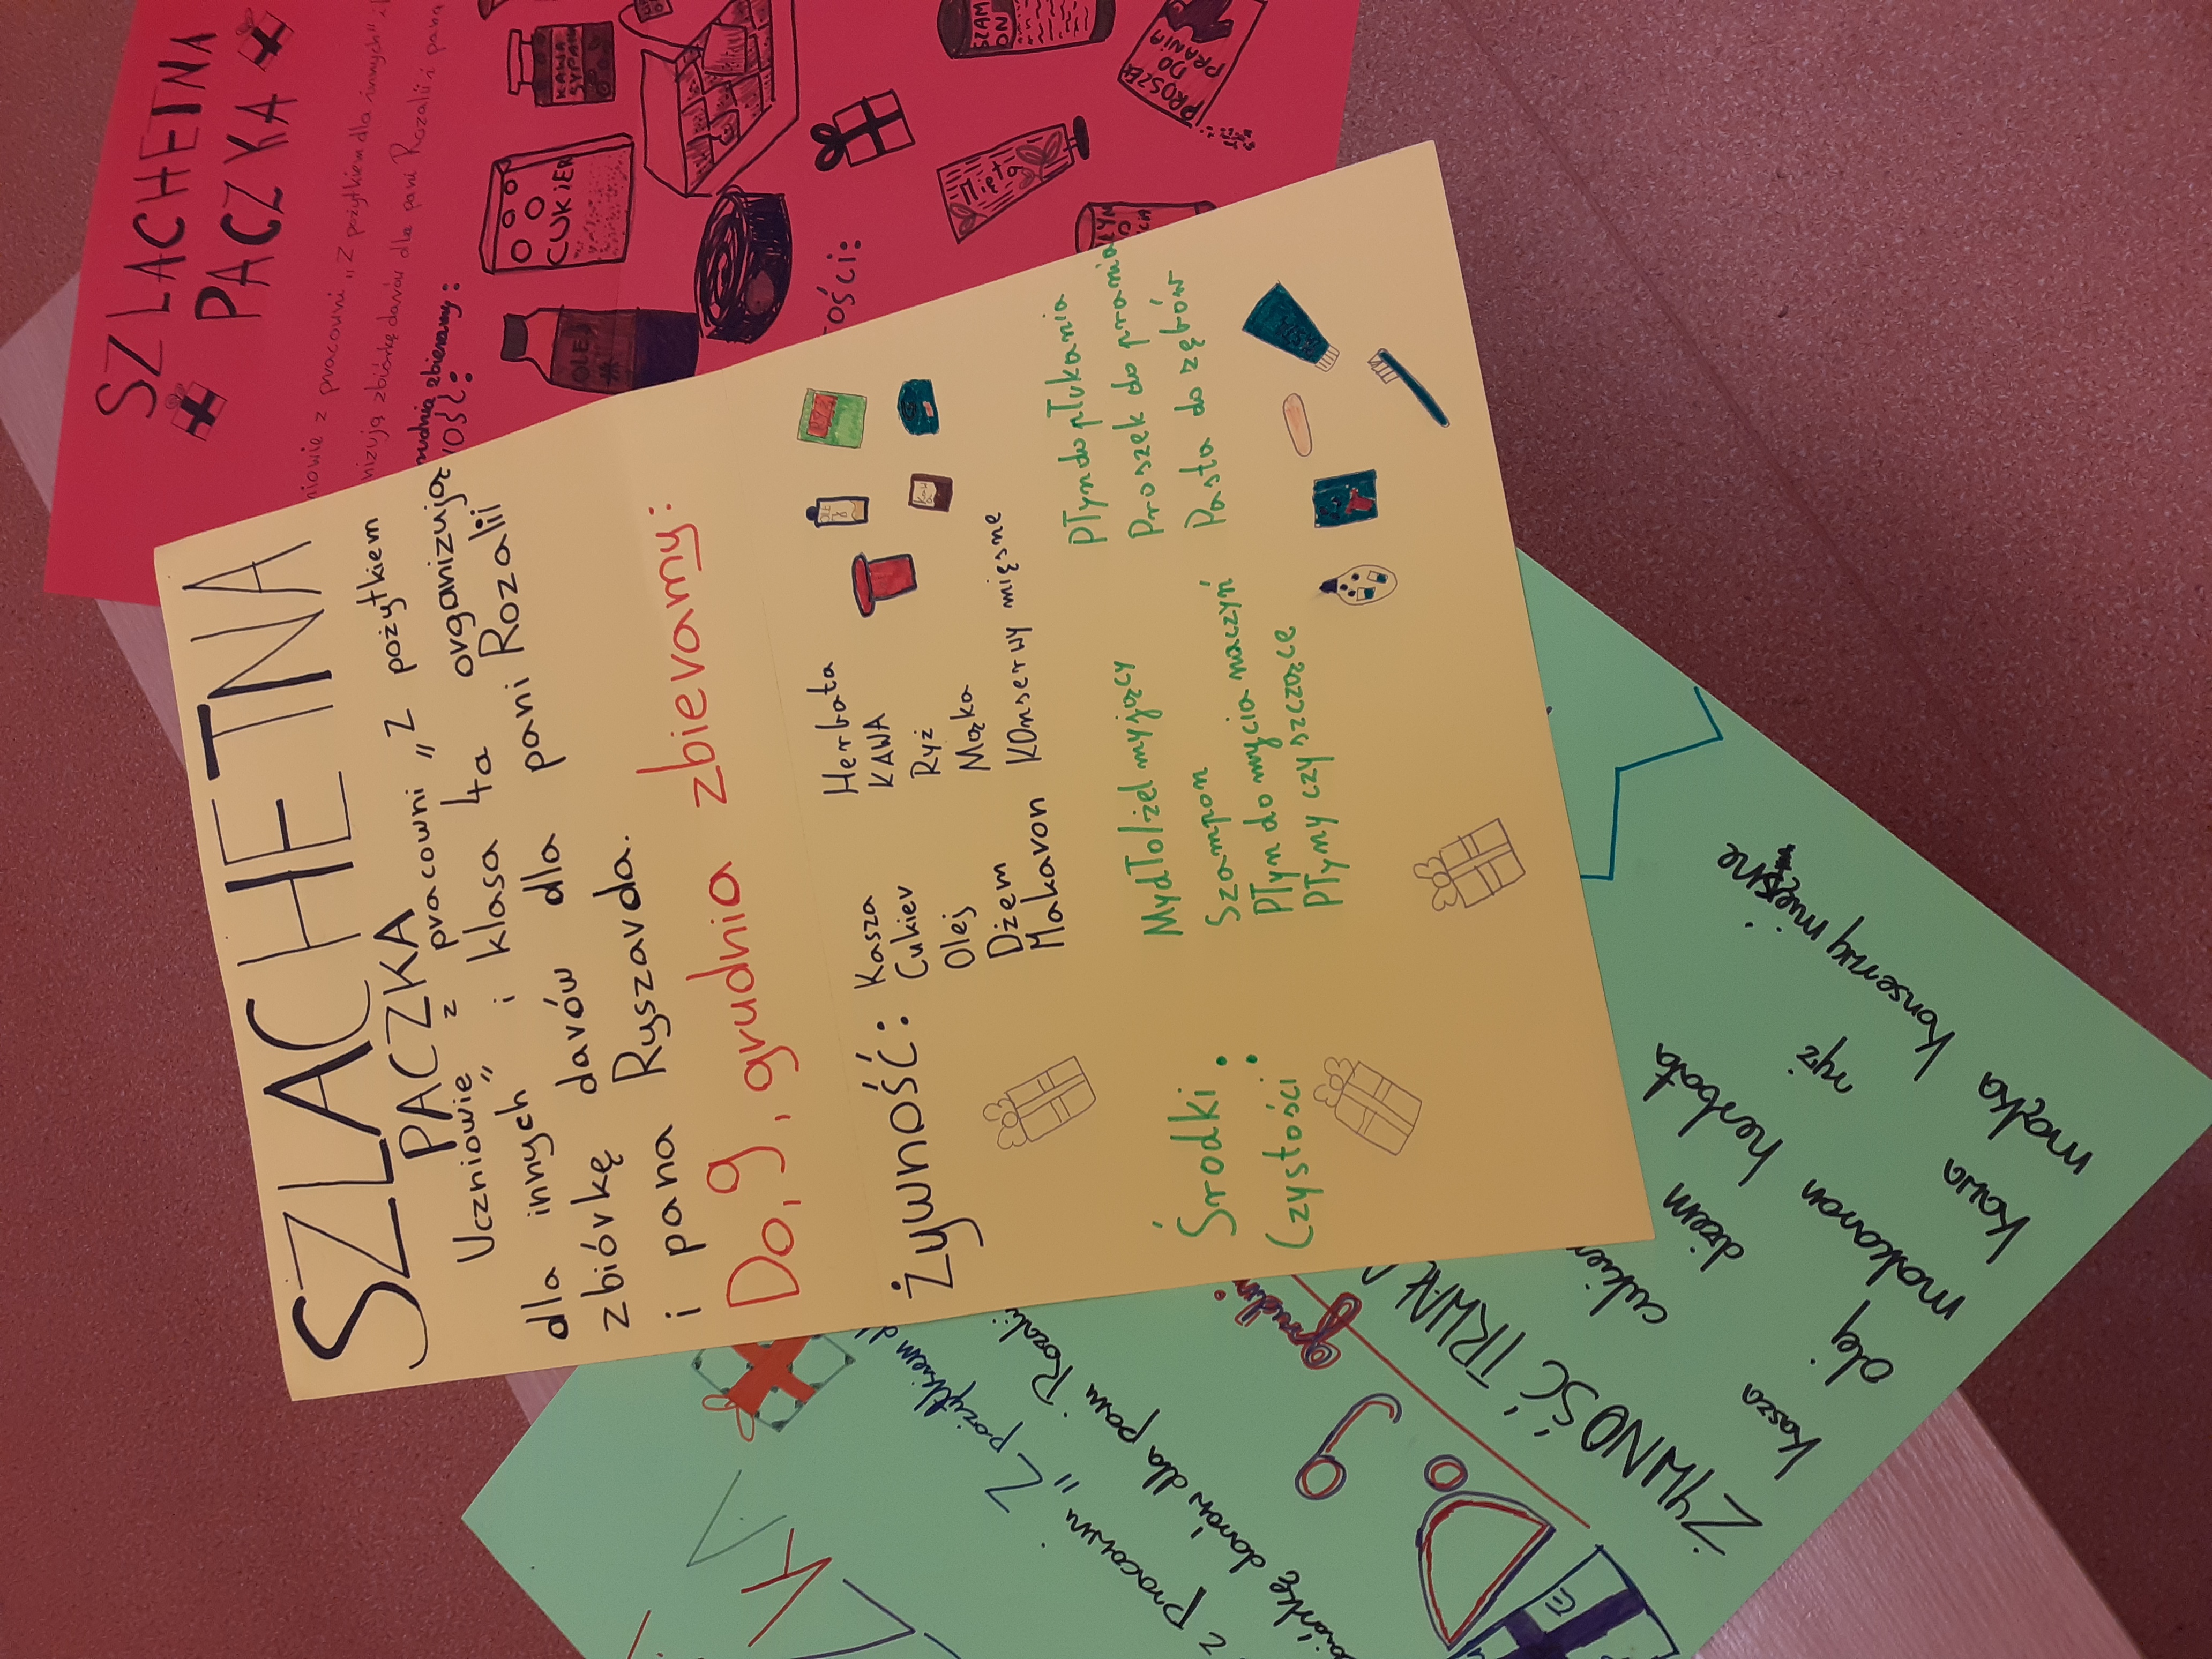 SZLACHETNA
PACZKA
Uczniowie z pracowni „Z pożytkiem
dla innych" i klasa 4a organizują
zbiórkę darów dla dla pani Rozalii
i pana Ryszarda.
Do, 9, grudnia zbieramy:
Żywność:
Kasza
Cukier
Olej
Dżem
Makaron
Herbata
KAWA
Ryż
Mąka
Konserwy mięsne
Środki
Czystości:
Mydło/żel myjący
Szampon
Płyn do mycia naczyń
Płyny czyszczące
Płyn do płukania
Proszek do prania
Pasta do zębów
SZLACHETNA
PACZKA
niowie z pracowni „Z pożytkiem dla innych" i
nizują zbiórkę darów dla pani Rozalii i pana
rudnia zbieramy:
ość:
OLEJ
CUKIER
KAWA
SYPANA
ości:
Mięta
SZAM
ON
PROSZEK
DO
PRANIA
z Pracowni „Z pożytkiem d
biórkę darów dla pani Rozali
Do 9 grudni
ŻYWNOŚĆ TRWAŁ
kasza cukier
olej dżem
makaron herbata
kawa ryż
mąka konserwy mięsne